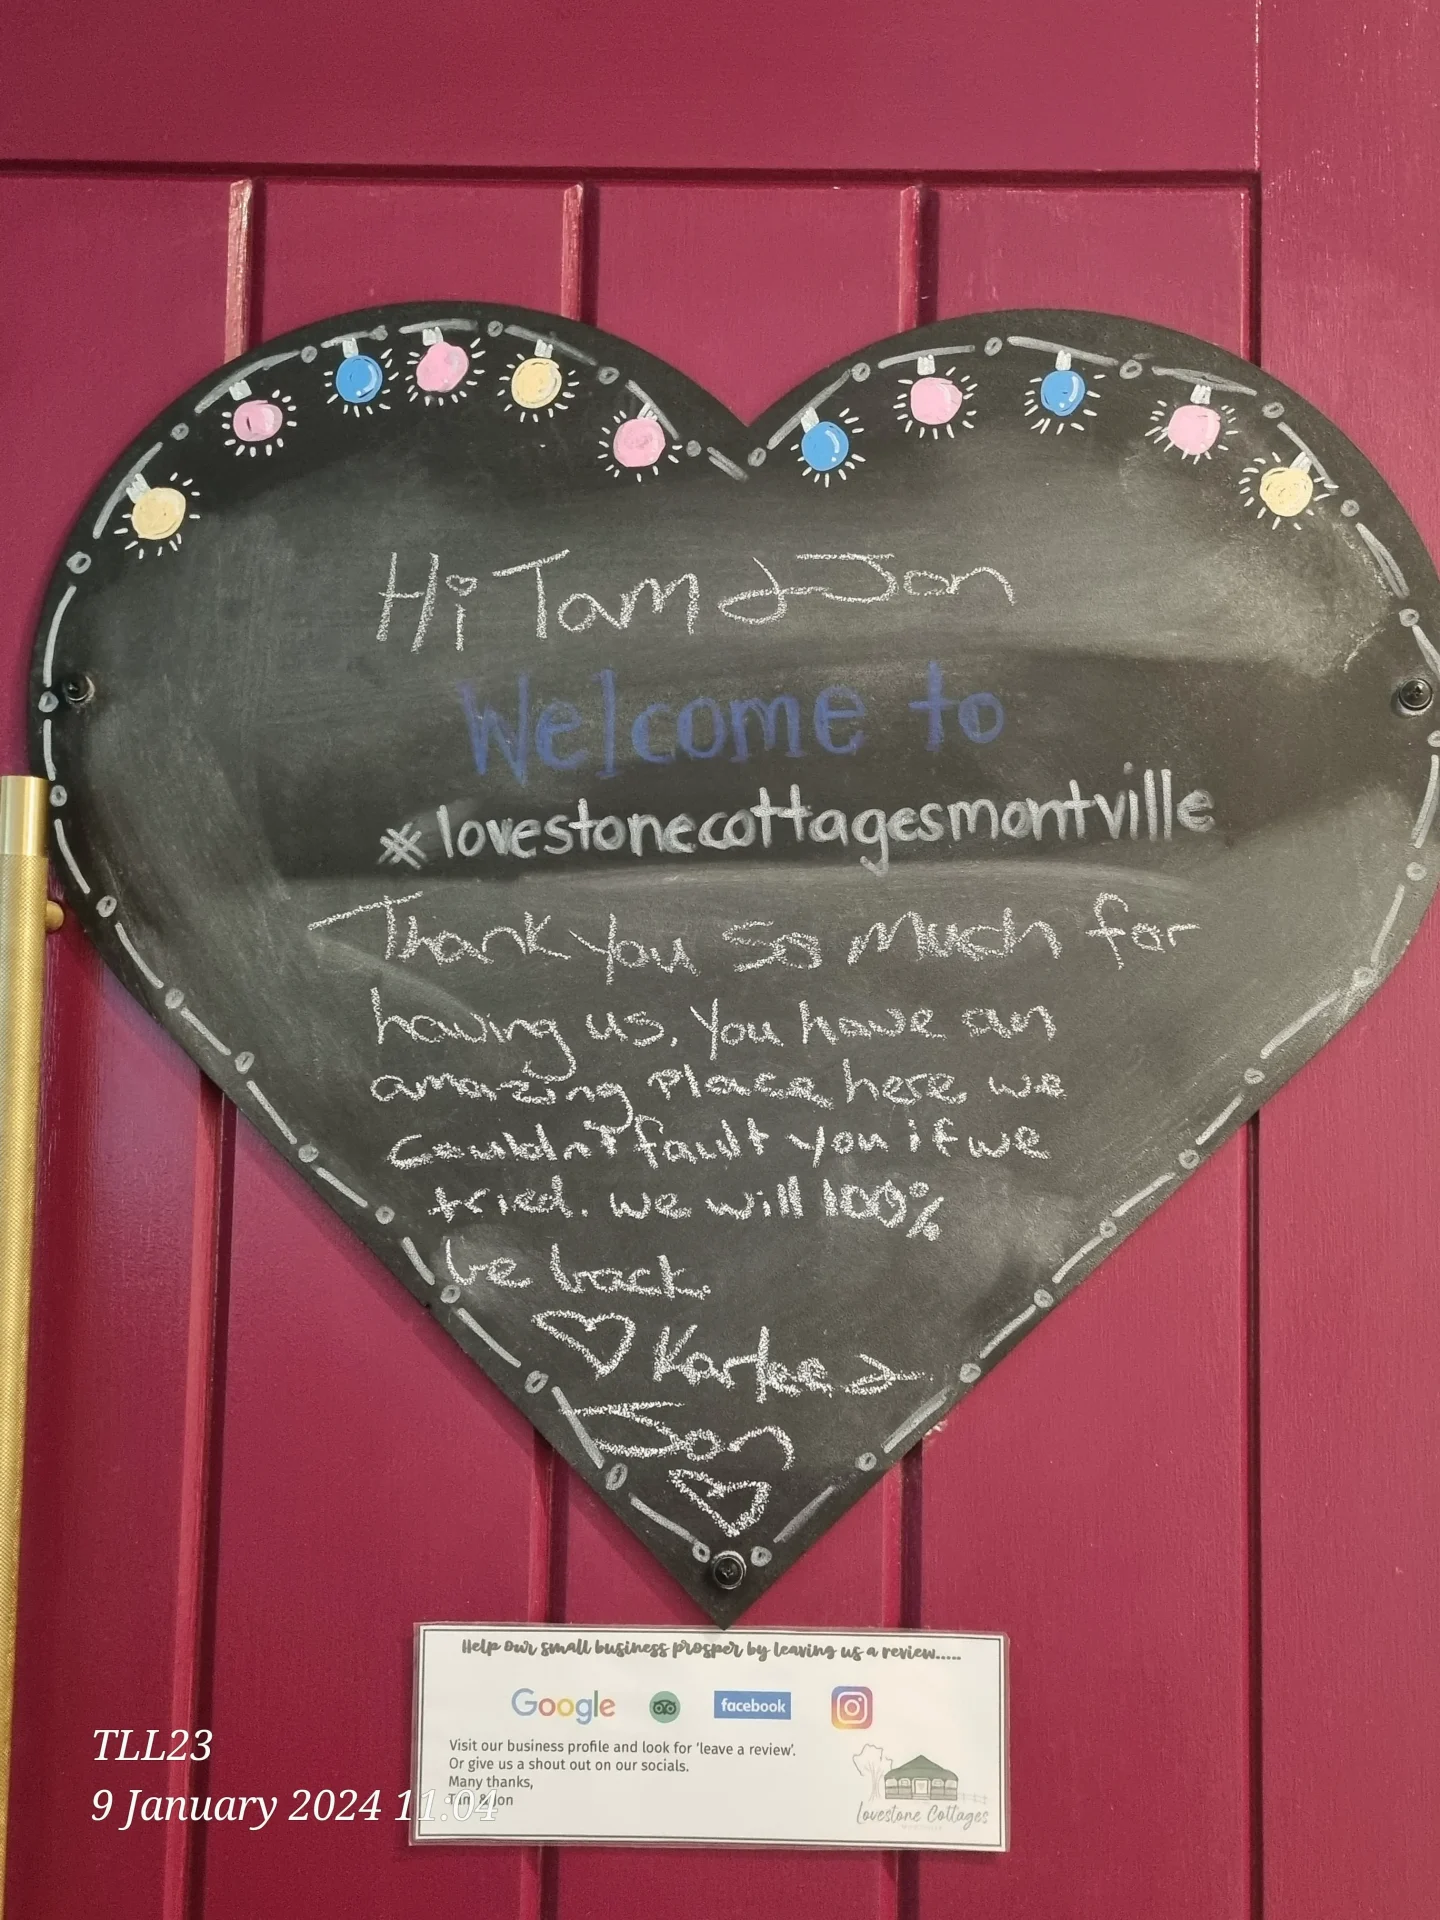 Hi Tam & Jon
Welcome to
#lovestonecottagesmontville
Thank You So Much for
having us, You have an
amazing Place here we
couldn't fault you if we
tried. we will 100%
be back.
Karlee &
Jon
Help our small business prosper by leaving us a review.....
Google facebook
Visit our business profile and look for 'leave a review'.
Or give us a shout out on our socials.
Many thanks,
Tam & Jon
Lovestone Cottages
TLL23
9 January 2024 11.04